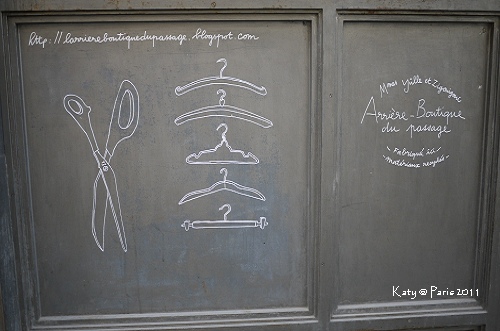 http://larriereboutiquedupassage.blogspot.com
Mmes Yuille et Zigouigoui
Arrière-Boutique
du passage
Fabriqué ici
matériaux recyclés
Katy @ Paris 2011